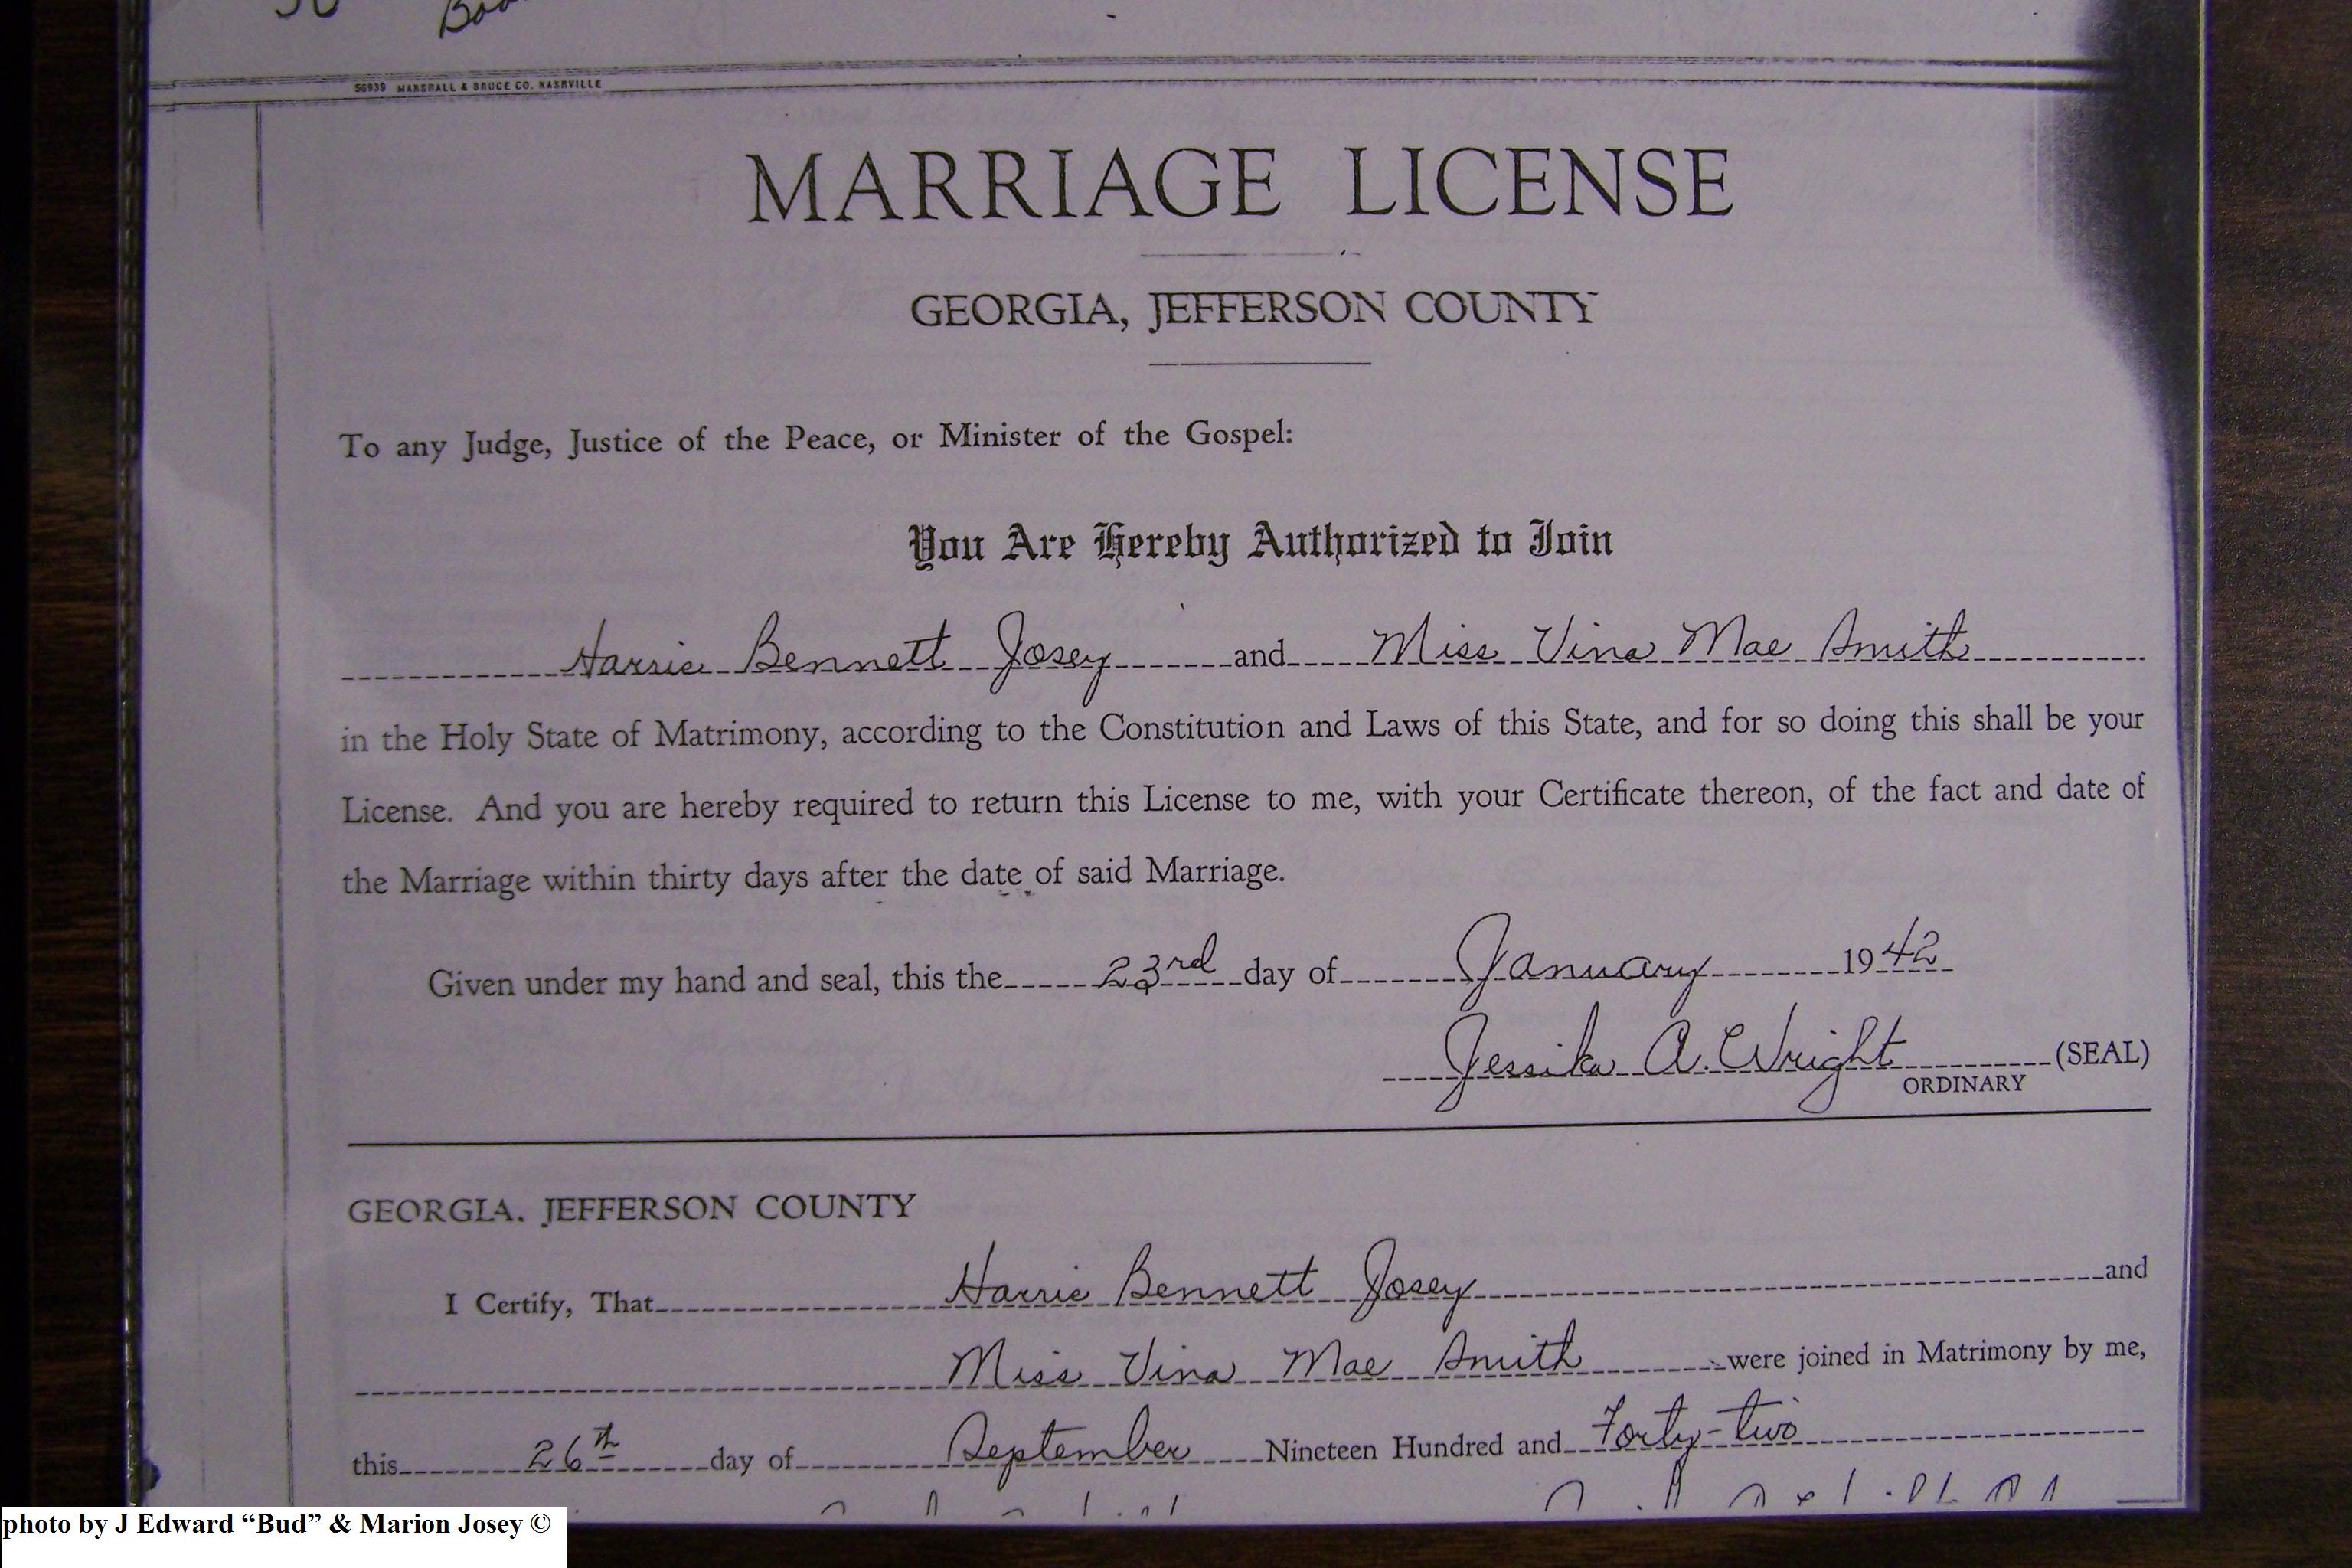 Boo
S6939 MARSHALL & BRUCE CO. NASHVILLE
MARRIAGE LICENSE
GEORGIA, JEFFERSON COUNTY
To any Judge, Justice of the Peace, or Minister of the Gospel:
You Are Hereby Authorized to Join
Harrie Bennett Josey and Miss Vina Mae Smith
in the Holy State of Matrimony, according to the Constitution and Laws of this State, and for so doing this shall be your
License. And you are hereby required to return this License to me, with your Certificate thereon, of the fact and date of
the Marriage within thirty days after the date of said Marriage.
Given under my hand and seal, this the 23rd day of January 1942
Jessika A. Wright (SEAL)
ORDINARY
GEORGIA. JEFFERSON COUNTY
I Certify, That Harrie Bennett Josey and
Miss Vina Mae Smith were joined in Matrimony by me,
this 26th day of September Nineteen Hundred and Forty-two
photo by J Edward “Bud” & Marion Josey ©